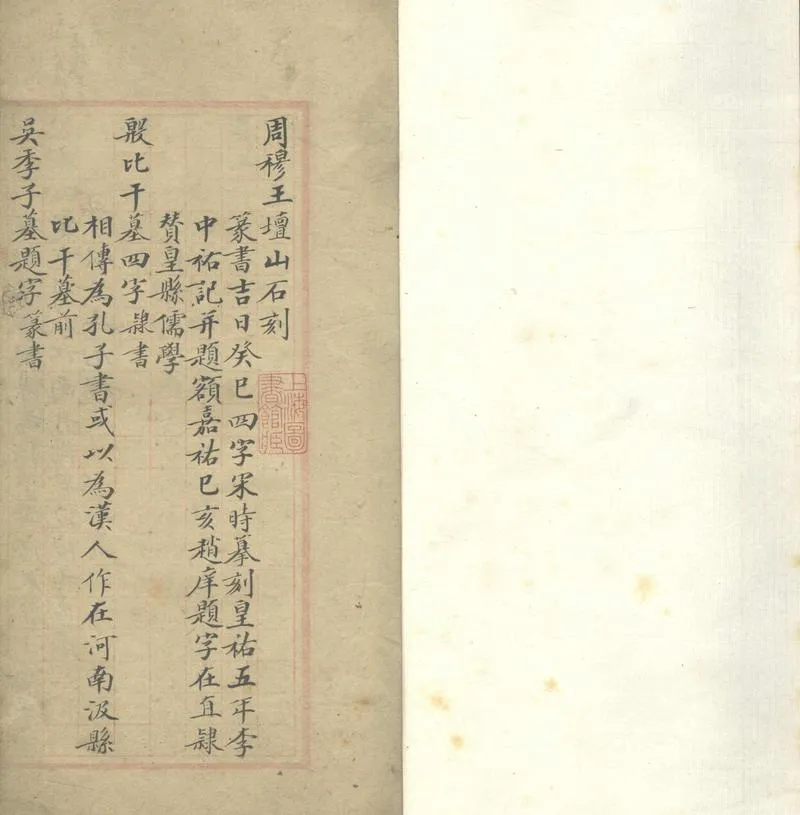 周穆王壇山石刻
篆書吉日癸巳四字宋時摹刻皇祐五年李
中祐記并題額嘉祐己亥趙庠題字在直隸
賛皇縣儒學
殷比干墓四字隸書
相傳為孔子書或以為漢人作在河南汲縣
比干墓前
吳季子墓題字篆書
上海圖
書館藏